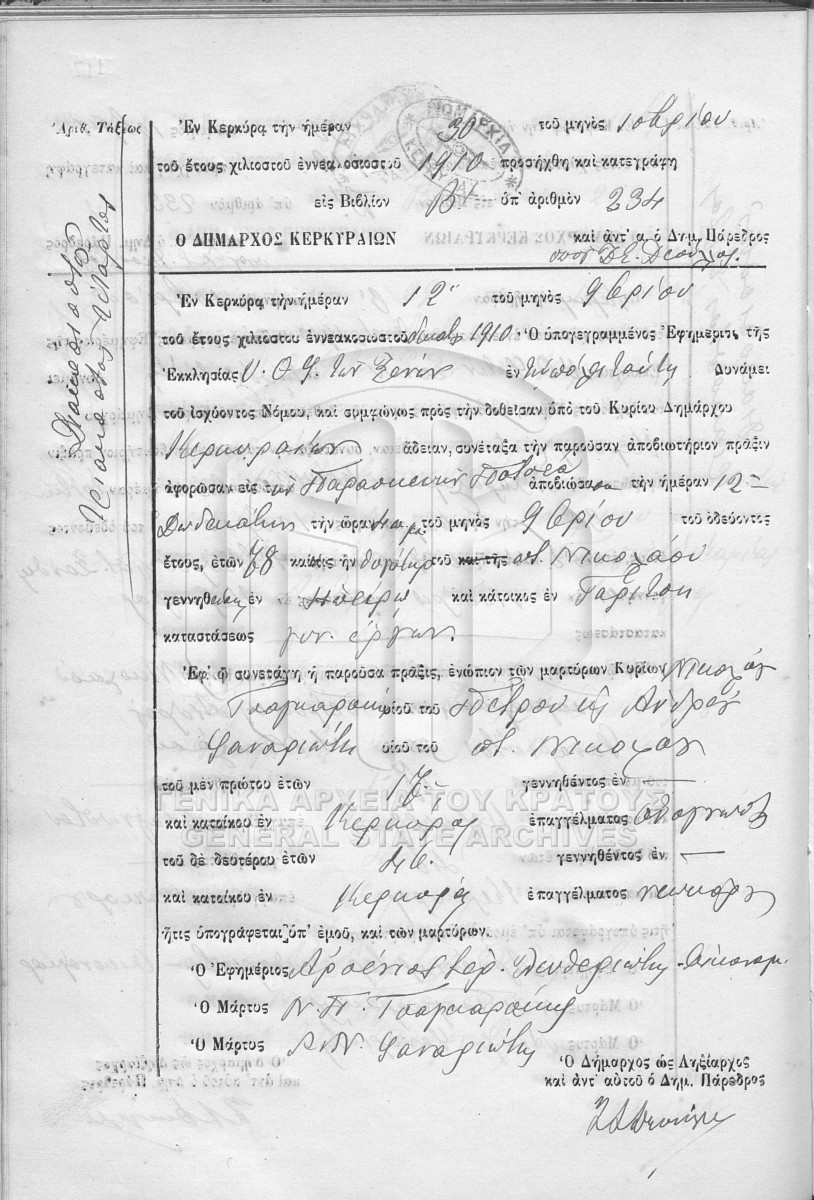 Ἀριθ. Τάξεως
Διακόσια
τριάκοντα τέταρτος
ΝΟΜΑΡΧΙΑ ΚΕΡΚΥΡΑΣ
Ἐν Κερκύρᾳ τὴν ἡμέραν 30 τοῦ μηνὸς 10βρίου
τοῦ ἔτους χιλιοστοῦ ἐννεακοσιοστοῦ 1910 προσήχθη καὶ κατεγράφη
εἰς Βιβλίον ὑπ' ἀριθμὸν 234
Ὁ ΔΗΜΑΡΧΟΣ ΚΕΡΚΥΡΑΙΩΝ καὶ ἀντ' α. ὁ Δημ. Πάρεδρος
Ἐν Κερκύρᾳ τὴν ἡμέραν 12 τοῦ μηνὸς 9βρίου
τοῦ ἔτους χιλιοστοῦ ἐννεακοσιοστοῦ 1910. Ὁ ὑπογεγραμμένος Ἐφημέριος τῆς
Ἐκκλησίας Υ. Θ. τῶν Ξένων ἐν τῇ πόλει ταύτῃ Δυνάμει
τοῦ ἰσχύοντος Νόμου, καὶ συμφώνως πρὸς τὴν δοθεῖσαν ὑπὸ τοῦ Κυρίου Δημάρχου
Κερκυραίων ἄδειαν, συνέταξα τὴν παροῦσαν ἀποβιωτήριον πρᾶξιν
ἀφορῶσαν εἰς τὴν Παρασκευὴν ἀποβιώσασαν τὴν ἡμέραν 12
Δωδεκάτην τὴν ὥραν τοῦ μηνὸς 9βρίου τοῦ ὁδεύοντος
ἔτους, ἐτῶν 78 καὶ ἥτις ἦν θυγάτηρ τοῦ καὶ τῆς ποτ. Νικολάου
γεννηθεῖσα ἐν Ἠπείρῳ καὶ κάτοικος ἐν Γαρίτσῃ
καταστάσεως γυν. ἔργων.
Ἐφ' ᾧ συνετάγη ἡ παροῦσα πρᾶξις, ἐνώπιον τῶν μαρτύρων Κυρίων Νικολάου
Τσαγκαράκη υἱοῦ τοῦ Πέτρου κ Ἀνδρέου
Φαναριώτη υἱοῦ τοῦ ποτ. Νικολάου
τοῦ μὲν πρώτου ἐτῶν γεννηθέντος ἐν —
ΓΕΝΙΚΑ ΑΡΧΕΙΑ ΤΟΥ ΚΡΑΤΟΥΣ
καὶ κατοίκου ἐν Κερκύρας ἐπαγγέλματος
GENERAL STATE ARCHIVES
τοῦ δὲ δευτέρου ἐτῶν γεννηθέντος ἐν —
καὶ κατοίκου ἐν Κερκύρᾳ ἐπαγγέλματος νεωκόρου
ἥτις ὑπογράφεται ὑπ' ἐμοῦ, καὶ τῶν μαρτύρων.
Ὁ Ἐφημέριος Ἀρσένιος ἱερ. Ἐλευθεριώτης
Ὁ Μάρτυς Ν. Π. Τσαγκαράκης
Ὁ Μάρτυς Α. Ν. Φαναριώτης
Ὁ Δήμαρχος ὡς Ληξίαρχος
καὶ ἀντ' αὐτοῦ ὁ Δημ. Πάρεδρος